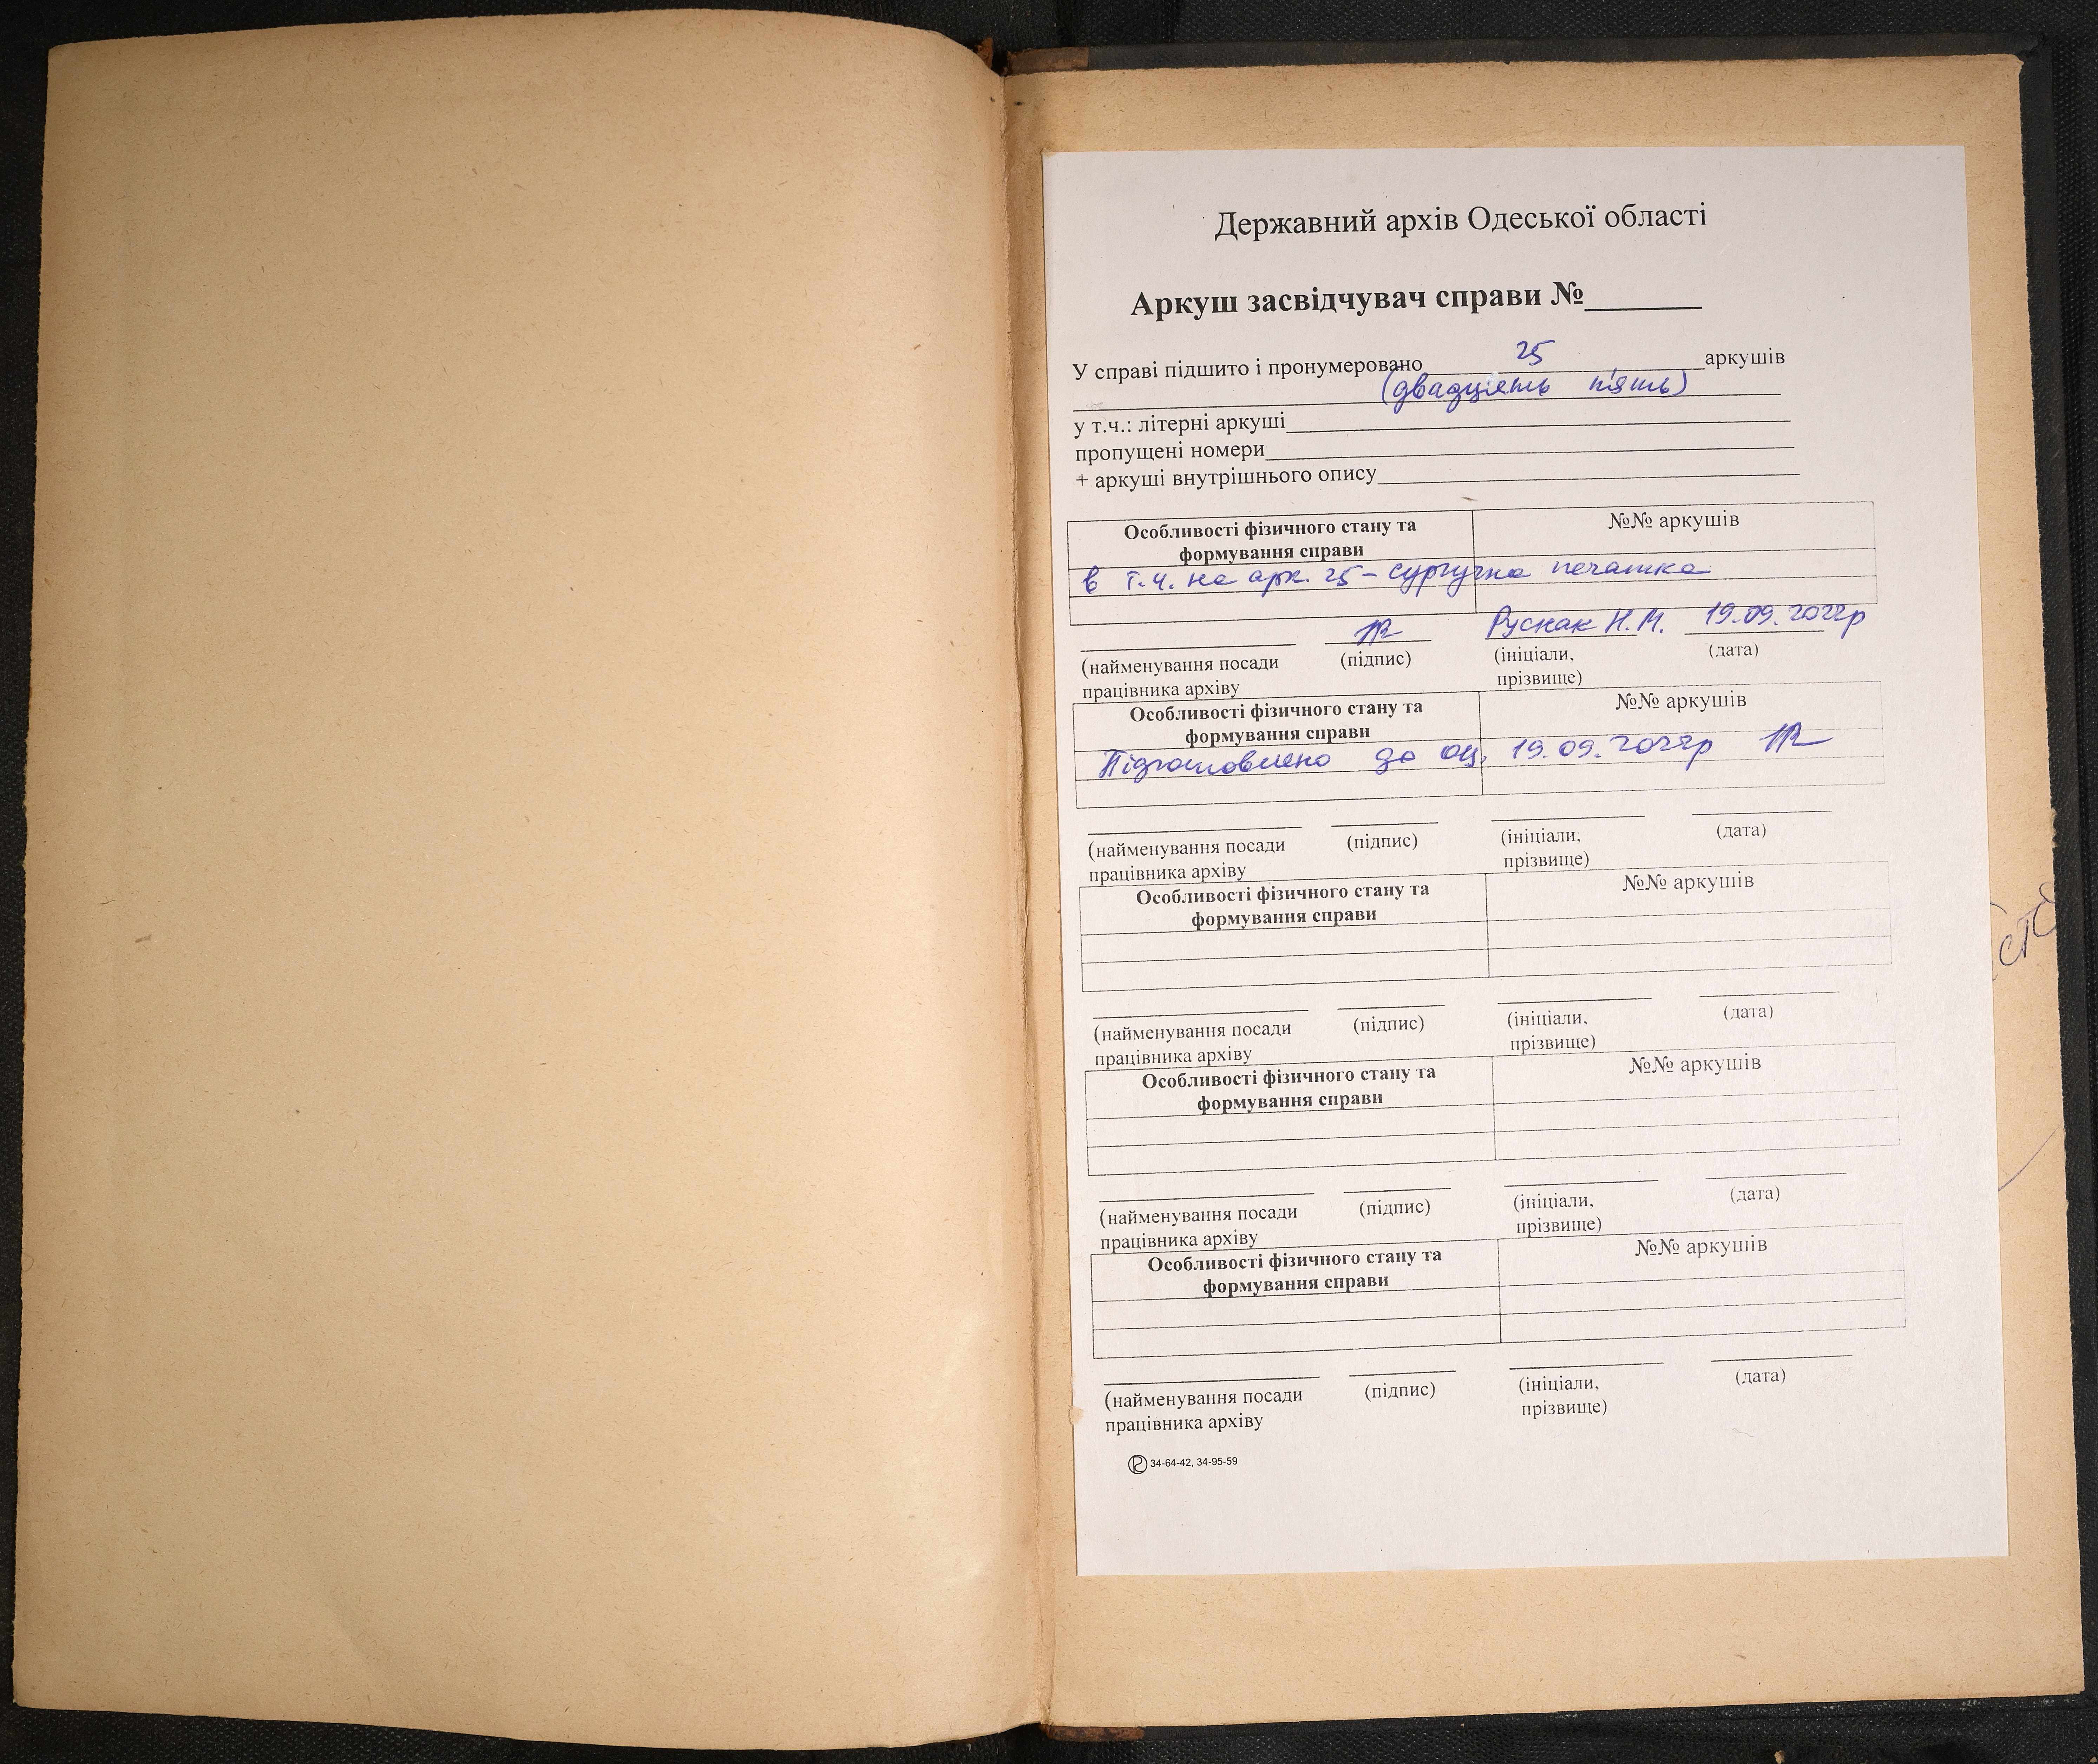 Державний архів Одеської області
Аркуш засвідчувач справи №______
У справі підшито і пронумеровано 25 аркушів
(двадцять п'ять)
у т.ч.: літерні аркуші
пропущені номери
+ аркуші внутрішнього опису
Особливості фізичного стану та №№ аркушів
формування справи
в т.ч. на арк. 25 – сургучна печатка
Руснак Н.М. 19.09.2022р
(найменування посади (підпис) (ініціали, (дата)
працівника архіву прізвище)
Особливості фізичного стану та №№ аркушів
формування справи
Підготовлено до оц. 19.09.2022р
(найменування посади (підпис) (ініціали, (дата)
працівника архіву прізвище)
Особливості фізичного стану та №№ аркушів
формування справи
(найменування посади (підпис) (ініціали, (дата)
працівника архіву прізвище)
Особливості фізичного стану та №№ аркушів
формування справи
(найменування посади (підпис) (ініціали, (дата)
працівника архіву прізвище)
Особливості фізичного стану та №№ аркушів
формування справи
(найменування посади (підпис) (ініціали, (дата)
працівника архіву прізвище)
34-64-42, 34-95-59